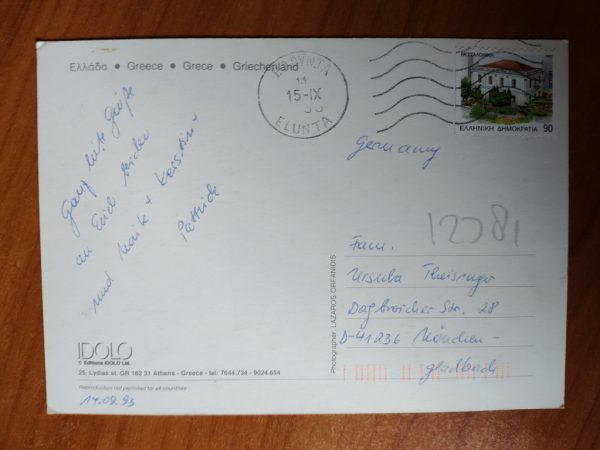 Ελλάδα • Greece • Grece • Griechenland
ΕΛΟΥΝΤΑ
15-IX
ELUNTA
ΘΕΣΣΑΛΟΝΙΚΗ
ΕΛΛΗΝΙΚΗ ΔΗΜΟΚΡΑΤΙΑ 90
Ganz liebe Grüße
an Euch beiden
und Maike + Kerstin
Patrick
Germany
12081
Fam.
Ursula
Dagbroicher Str. 28
D-41236 Mönchen-
gladbach
Photographer LAZAROS ORFANIDIS
IDOLO
© Editions IDOLO Ltd.
25, Lydias st. GR 162 31 Athens - Greece - tel: 7644.734 - 9024.654
Reproduction not permited for all countries
14.09.93